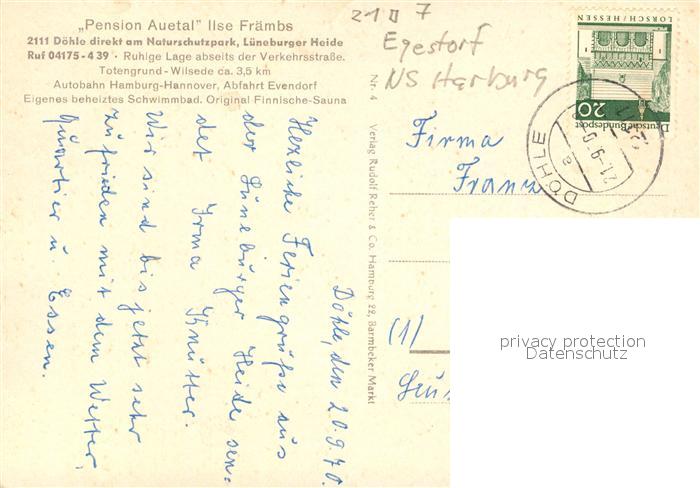 „Pension Auetal" Ilse Främbs
2111 Döhle direkt am Naturschutzpark, Lüneburger Heide
Ruf 04175 - 4 39 · Ruhige Lage abseits der Verkehrsstraße.
Totengrund - Wilsede ca. 3,5 km
Autobahn Hamburg-Hannover, Abfahrt Evendorf
Eigenes beheiztes Schwimmbad. Original Finnische-Sauna
Egestorf
NS Harburg
LORSCH / HESSEN
20
Deutsche Bundespost
DÖHLE
Nr. 4 Verlag Rudolf Reher & Co. Hamburg 22, Barmbeker Markt
Firma
Franz
(1)
Döhle, den 20.9.70.
Herzliche Feriengrüße aus
der Lüneburger Heide sen-
det Irma Knutter.
Wir sind bis jetzt sehr
zufrieden mit dem Wetter,
Quartier u. Essen.
privacy protection
Datenschutz